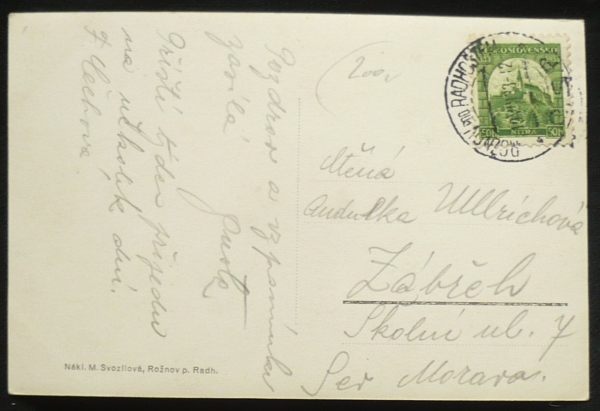 Pozdrav a vzpomínku
zasílá
Gusta
Příští týden přijedu
na několik dní.
F. Čechová
200,-
ČESKOSLOVENSKO
NITRA
50
50
RADHOŠTĚM
Ctěná
Andulka Ullrichová
Zábřeh
Školní ul. 7
Sev Morava.
Nákl. M. Svozilová, Rožnov p. Radh.